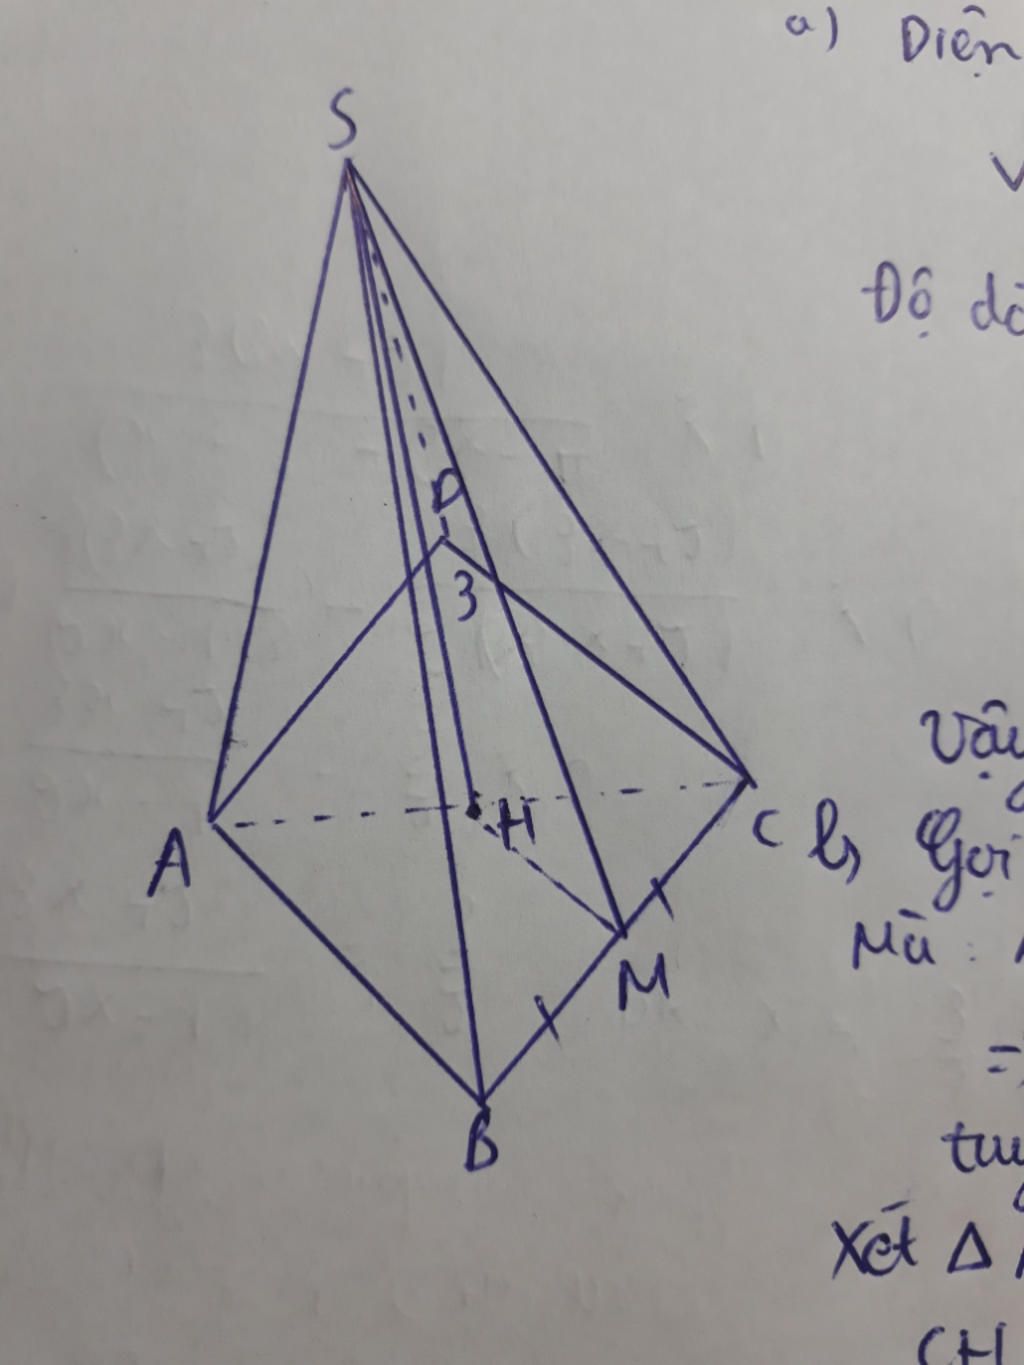 a) Diện
S
V
Độ dà
D
3
Vậy
H
C
A
b, Gọi
Mà :
M
=>
tuy
B
Xét Δ
CH